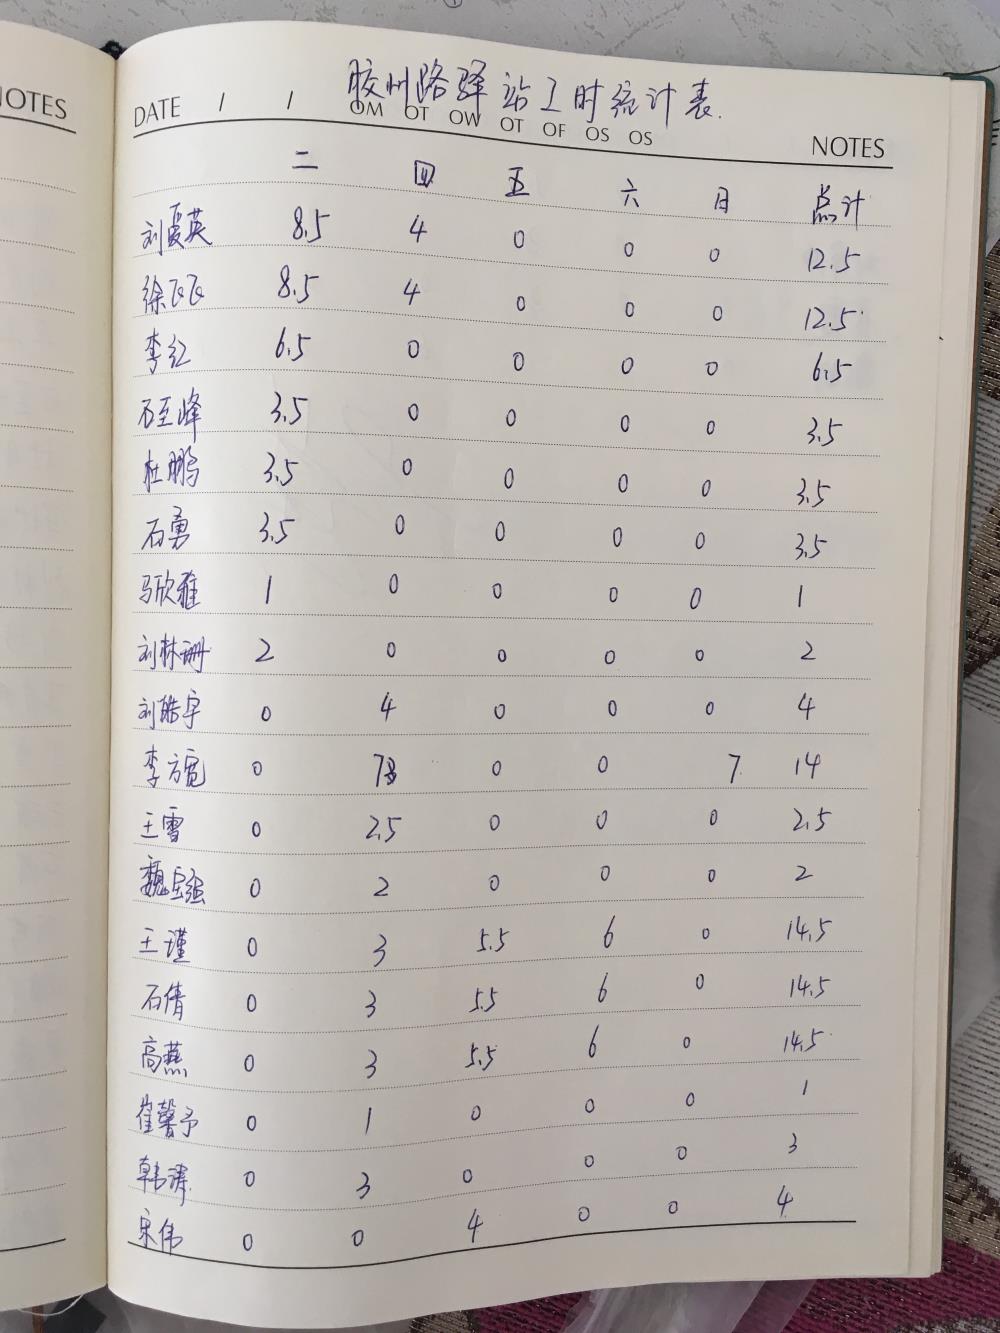 NOTES
胶州路驿站工时统计表.
DATE / / OM OT OW OT OF OS OS NOTES
二 四 五 六 日 总计
刘夏英 8.5 4 0 0 0 12.5
徐辰辰 8.5 4 0 0 0 12.5
李红 6.5 0 0 0 0 6.5
石至峰 3.5 0 0 0 0 3.5
杜鹏 3.5 0 0 0 0 3.5
石勇 3.5 0 0 0 0 3.5
马欣雅 1 0 0 0 0 1
刘林珊 2 0 0 0 0 2
刘皓宇 0 4 0 0 0 4
李方宽 0 7 0 0 7 14
王雪 0 2.5 0 0 0 2.5
魏 0 2 0 0 0 2
王谨 0 3 5.5 6 0 14.5
石倩 0 3 5.5 6 0 14.5
高燕 0 3 5.5 6 0 14.5
崔馨予 0 1 0 0 0 1
韩涛 0 3 0 0 0 3
宋伟 0 0 4 0 0 4